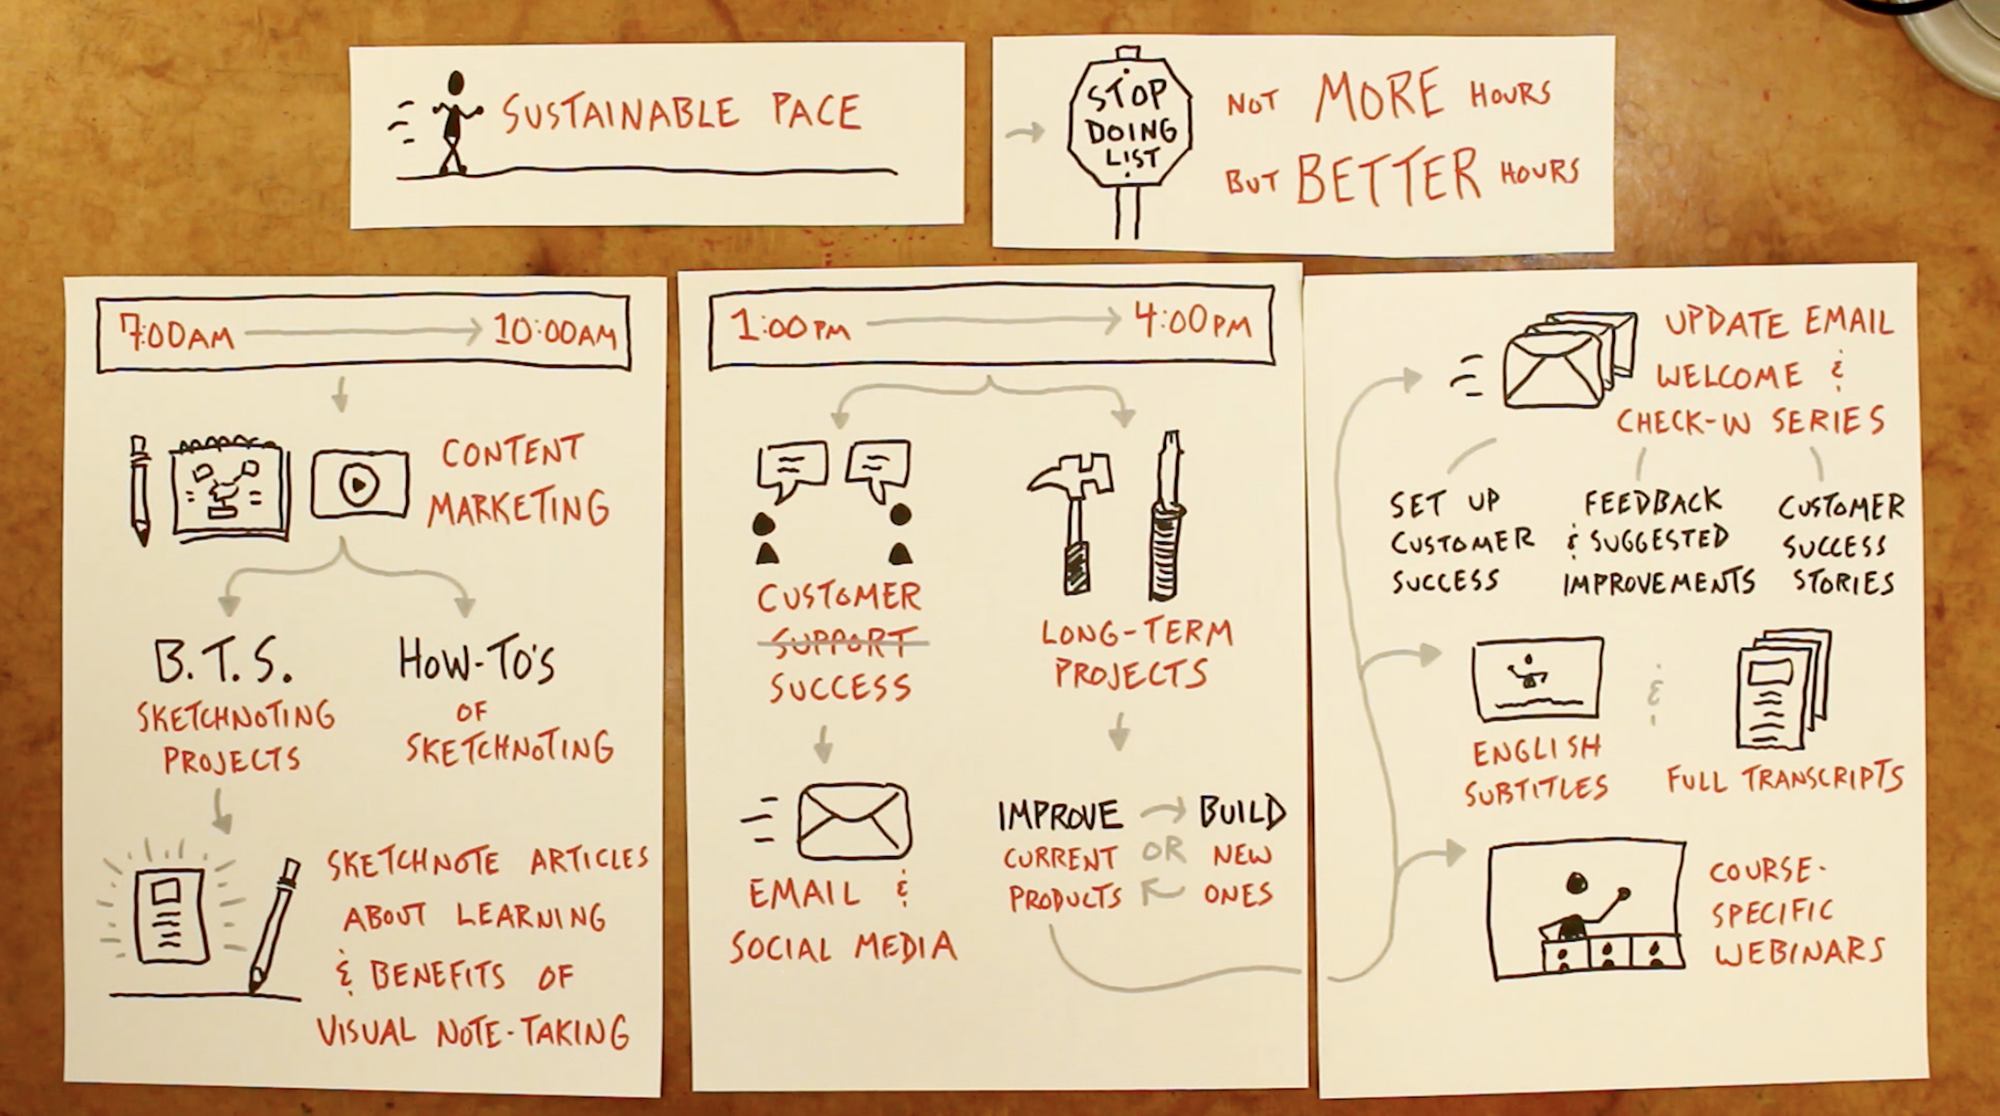 SUSTAINABLE PACE
STOP
DOING
LIST
NOT MORE HOURS
BUT BETTER HOURS
7:00AM 10:00AM
CONTENT
MARKETING
B.T.S.
SKETCHNOTING
PROJECTS
HOW-TO'S
OF
SKETCHNOTING
SKETCHNOTE ARTICLES
ABOUT LEARNING
& BENEFITS OF
VISUAL NOTE-TAKING
1:00PM 4:00PM
CUSTOMER
SUPPORT
SUCCESS
EMAIL &
SOCIAL MEDIA
LONG-TERM
PROJECTS
IMPROVE
CURRENT
PRODUCTS
OR
BUILD
NEW
ONES
UPDATE EMAIL
WELCOME &
CHECK-IN SERIES
SET UP
CUSTOMER
SUCCESS
FEEDBACK
& SUGGESTED
IMPROVEMENTS
CUSTOMER
SUCCESS
STORIES
ENGLISH
SUBTITLES
&
FULL TRANSCRIPTS
COURSE-
SPECIFIC
WEBINARS